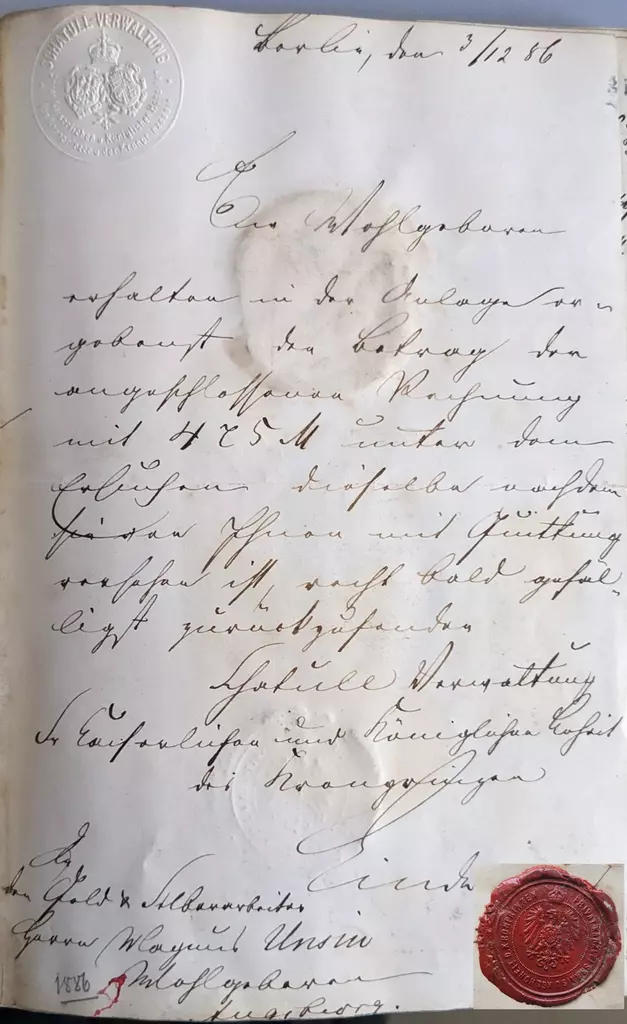 SCHATULL-VERWALTUNG
Berlin, den 3/12 86
Euer Wohlgeboren
erhalten in der Anlage er-
gebenst den Betrag der
angeschlossenen Rechnung
mit 475 M unter dem
Ersuchen dieselbe nachdem
von Ihnen mit Quittung
versehen ist, recht bald gefäl-
ligst zurückzusenden
Schatull Verwaltung
Sr Kaiserlichen und Königlichen Hoheit
des Kronprinzen
An
den Gold & Silberarbeiter
Herrn Magnus Unsin
Wohlgeboren
1886
Augsburg.